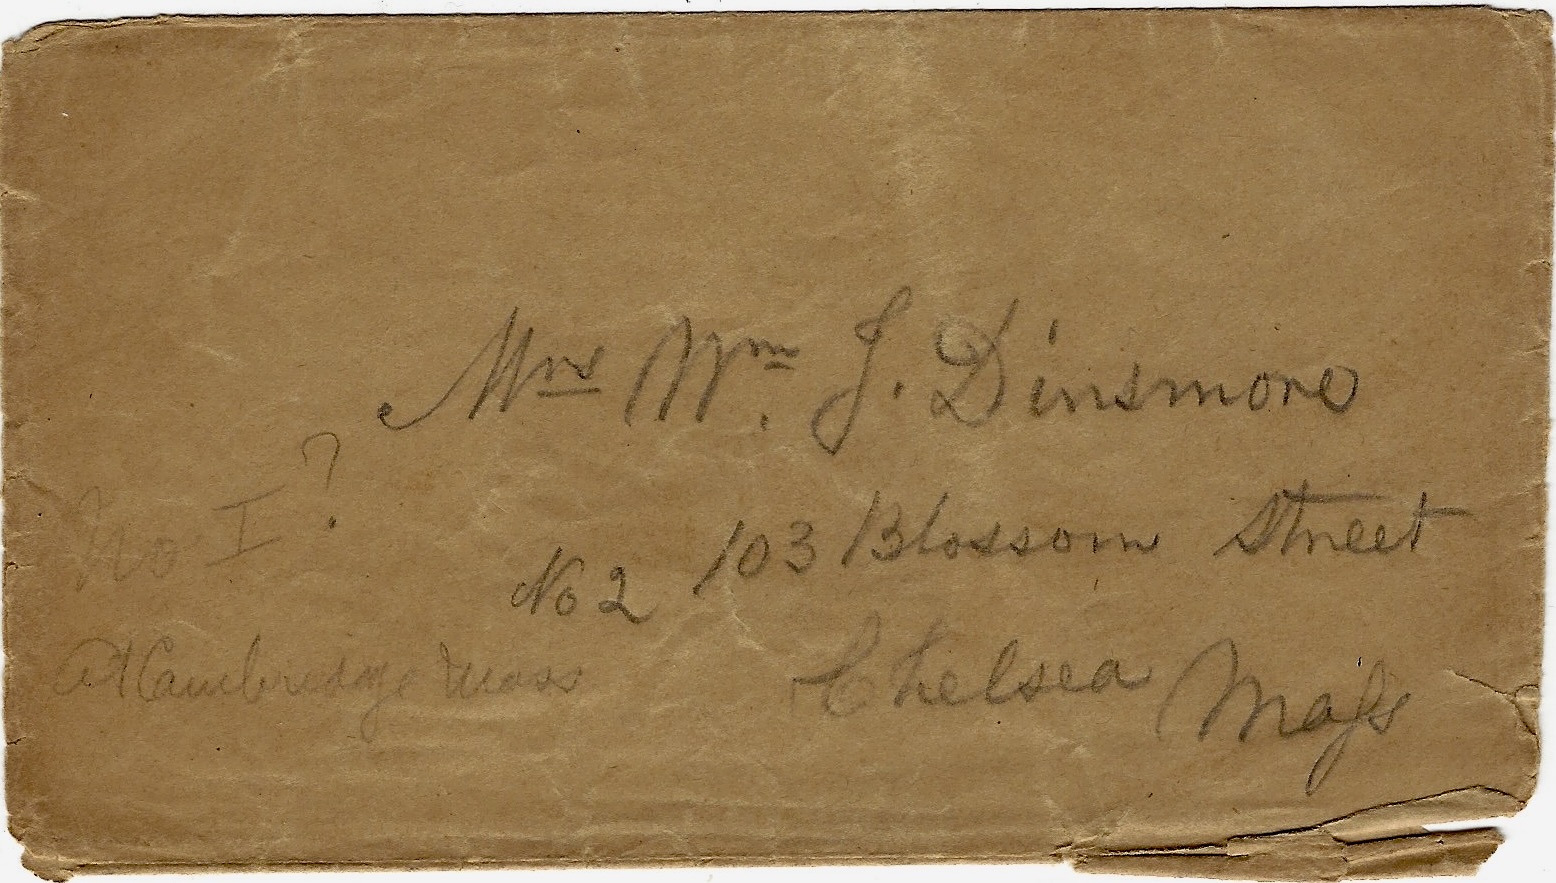 Mrs Wm. J. Dinsmore
No I ?
No 2 103 Blossom Street
At Cambridge Mass
Chelsea Mass